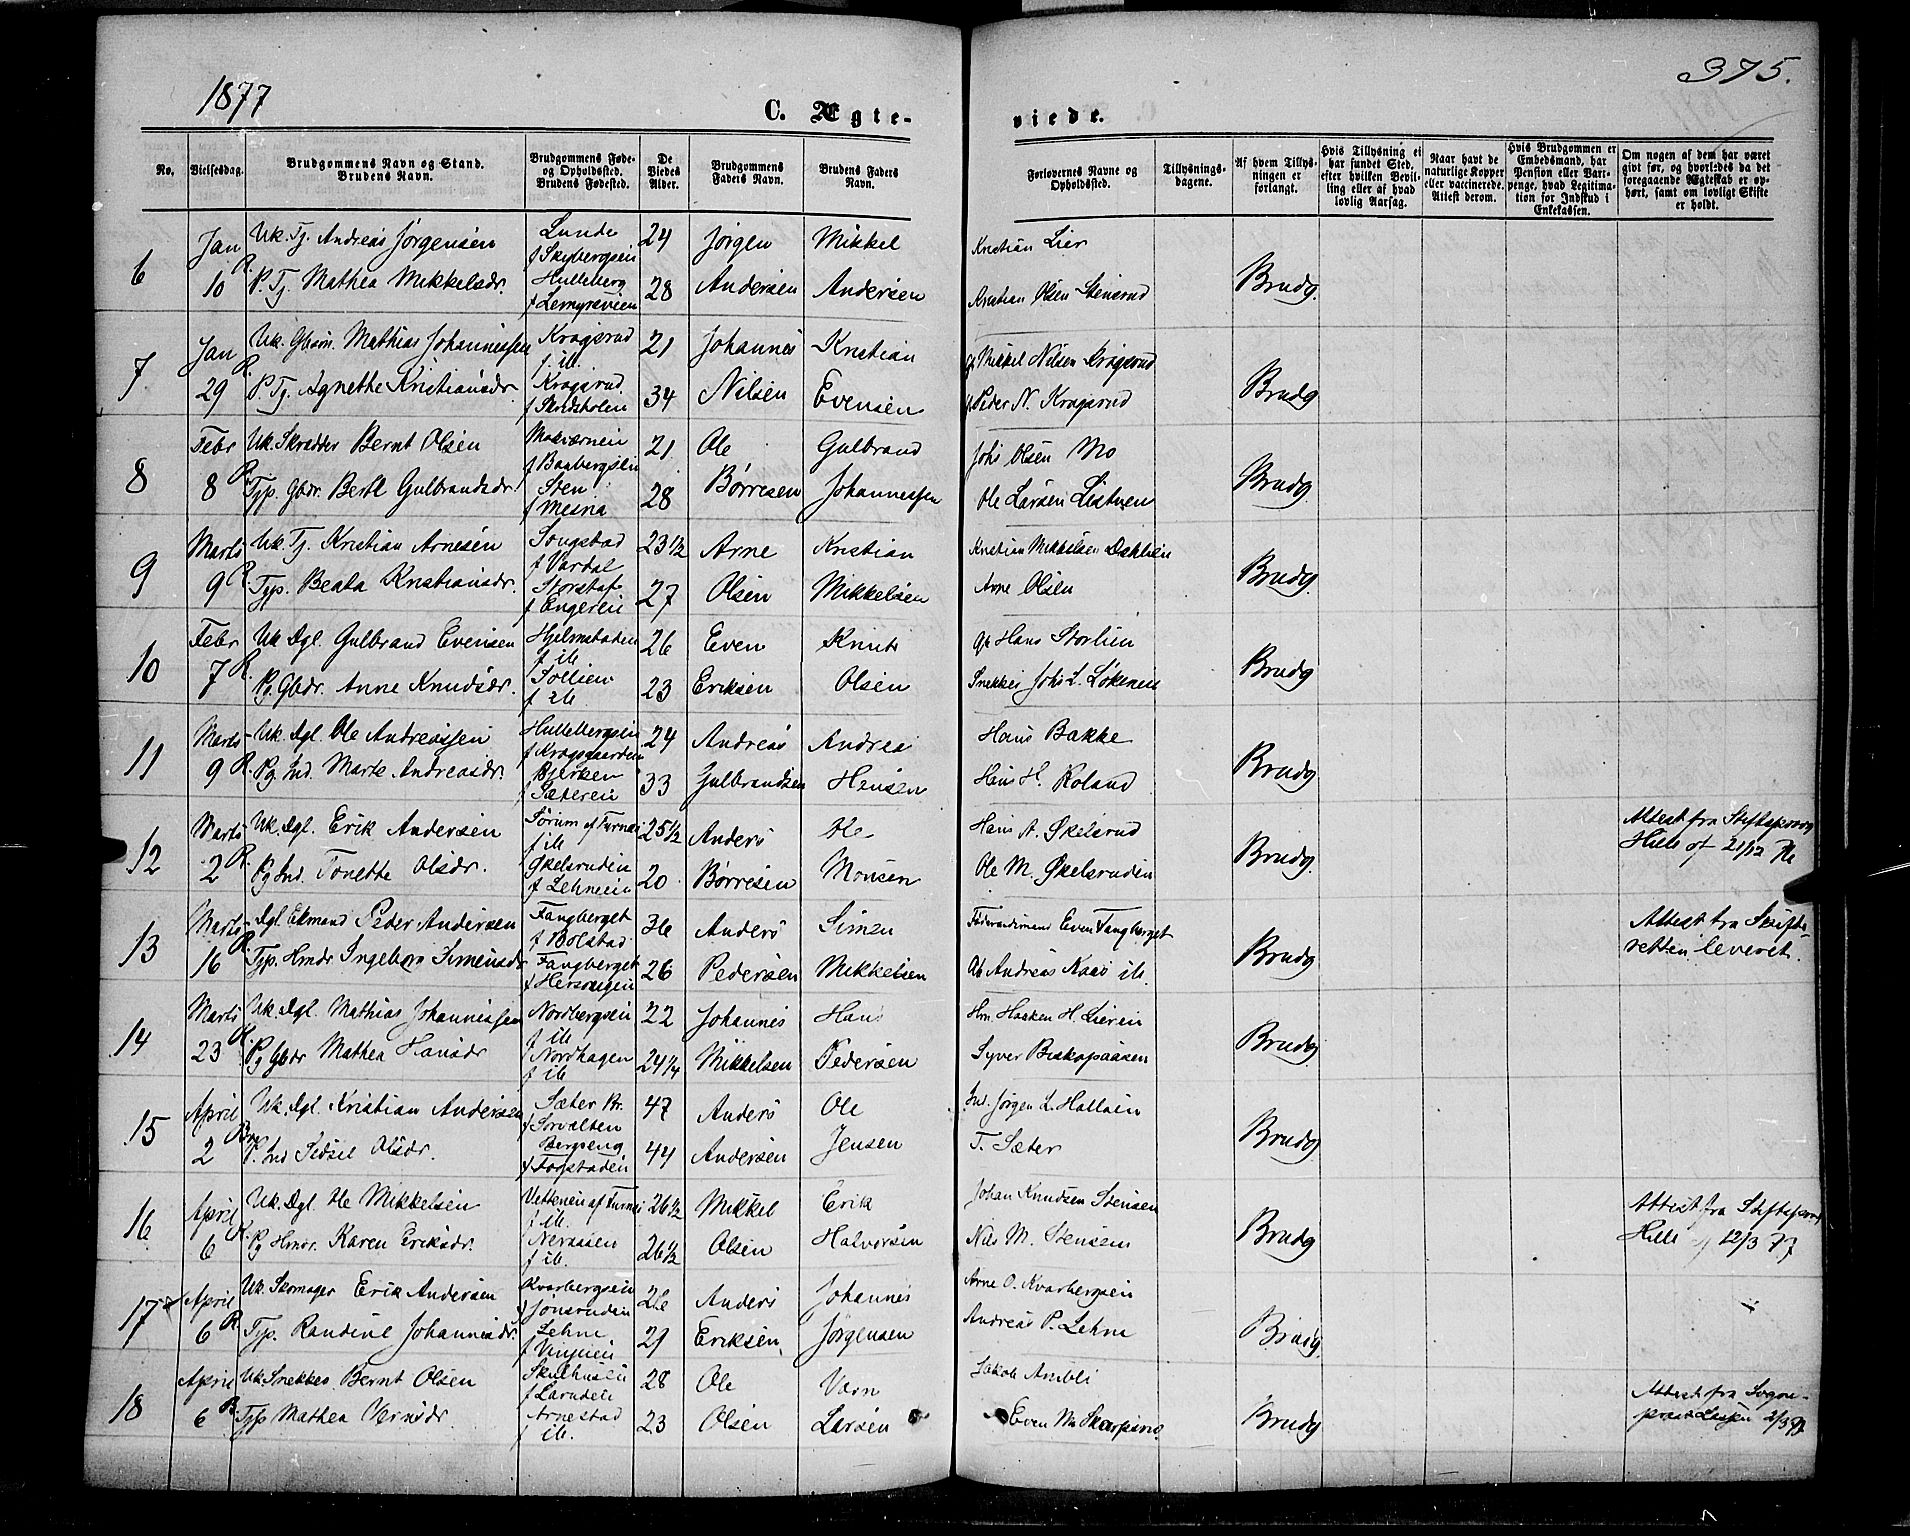 1877
375.
C. Ægte-
viede.
No.
Vielsesdag.
Brudgommens Navn og Stand.
Brudens Navn.
Brudgommens Føde-
og Opholdssted.
Brudens Fødested.
De
Viedes
Alder.
Brudgommens
Faders Navn.
Brudens Faders
Navn.
Forlovernes Navne og
Opholdssted.
Tillysnings-
dagene.
Af hvem Tillys-
ningen er
forlangt.
Hvis Tillysning ei
har fundet Sted,
efter hvilken Bevil-
ling eller af hvad
lovlig Aarsag.
Naar havt de
naturlige Kopper
eller vaccinerede.
Attest derom.
Hvis Brudgommen er
Embedsmand, har
Pension eller Vart-
penge, hvad Legitima-
tion for Indskud i
Enkekassen.
Om nogen af dem har været
givt før, og hvorledes da det
foregaaende Ægteskab er op-
hørt, samt om lovligt Skifte
er holdt.
6
Jan
10 R.
Uk. Tj. Andreas Jørgensen
P. Tj. Mathea Mikkelsdr.
Lunde
f Skybergseie
Hulleberg
f Lemyrseien
24
28
Jørgen
Andersen
Mikkel
Andersen
Kristian Lier
Kristian Olsen Stensrud
Brudg.
7
Jan
29 R.
Uk. Gbsøn. Mathias Johannessen
P. Tj. Agnethe Kristiansdr.
Kragsrud
f. ib.
Kragsrud
21
34
Johannes
Nilsen
Kristian
Evensen
Mikkel Nilsen Kragsrud
Peder N. Kragsrud
Brudg
8
Febr
8 R.
Uk. Skrædder Bernt Olsen
Typ. Gbdr. Berte Gulbrandsdr.
f Baabergseie
Sten
f Mesna
21
28
Ole
Børresen
Gulbrand
Johannessen
Johs Olsen Mo
Ole Larsen Listuen
Brudg.
9
Marts
9 R.
Uk. Tj. Kristian Arnesen
Typ. Beata Kristiansdr.
Songstad
f Vardal
f Engereie
23 1/2
27
Arne
Olsen
Kristian
Mikkelsen
Kristian Mikkelsen Dæhlien
Arne Olsen
Brudg.
10
Febr
7 R.
Uk. Dgl. Gulbrand Evensen
Pg Gbdr. Anne Knudsdr.
Hjelmstaden
f ib
f ib
26
23
Even
Eriksen
Knut
Olsen
Gb Hans Storlien
Snekker Johs L. Løkenen
Brudg
11
Marts
9 R.
Uk. Dgl. Ole Andreassen
Pg. Ind. Marte Andreasdr.
Hullebergseie
f Kragsgaarden
Bjerken
f Sætereie
24
33
Andreas
Gulbrandsen
Andreas
Hensen
Hans Bakke
Hans H. Roland
Brudg
12
Marts
2 R.
Uk. Dgl. Erik Andersen
Pg Ind. Tonette Olsdr.
Sørum af Furnes
f ib
Økelsrudeie
f Lehneeie
25 1/2
20
Anders
Børresen
Ole
Monsen
Hans A. Økelsrud
Ole M. Økelsruden
Brudg
Attest fra Stiftsprovst
Hille af 21/12 76
13
Marts
16 R.
Dgl. Ekmand Peder Andersen
Typ. Hmdr Ingeborg Simensdr
Fangberget
f Bolstad
Fangberget
36
26
Anders
Pedersen
Simen
Mikkelsen
Føderaadsmand Even Fangberget
Gb Andreas Kaas ib.
Brudg
Attest fra Skifte-
retten leveret.
14
Marts
23 R.
Uk. Dgl. Mathias Johannessen
Pg Gbdr Mathea Hansdr
Nordbergseie
f ib
Nordhagen
f ib
22
24 1/4
Johannes
Mikkelsen
Hans
Pedersen
Hm. Haaken H. Liereie
Syver Biskopaasen
Brudg
15
April
2 Br.
Uk. Dgl. Kristian Andersen
P. Ind Sidsel Olsdr.
Sæter Br.
f Sorvalten
Bergseng
f Torstadeie
47
44
Anders
Andersen
Ole
Jensen
Ind. Jørgen L. Hallaien
T. Sæter
Brudg
16
April
6 R.
Uk. Dgl. Ole Mikkelsen
Pg Hmdr. Karen Eriksdr.
Vetteneie af Furnes
f ib.
f ib.
26 1/2
26 1/2
Mikkel
Olsen
Erik
Halvorsen
Johan Knudsen Stensen
Nils M. Stensen
Brudg
Attest fra Stiftsprovst
Hille af 12/3 77
17
April
6 R
Uk. Skomager Erik Andersen
Typ. Randine Johannesdr.
Kvarbergseie
f Jønsruden
Lehne
26
29
Anders
Eriksen
Johannes
Jørgensen
Arne O. Kvarbergseie
Andreas P. Lehne
Brudg.
18
April
6 R
Uk. Snekker Bernt Olsen
Typ Mathea Vernsdr.
Arnestad
f ib.
28
23
Ole
Olsen
Værn
Larsen
Jakob Ambli
Even M. Skarpsno
Brudg
Attest fra Sogne-
præst 2/3 77